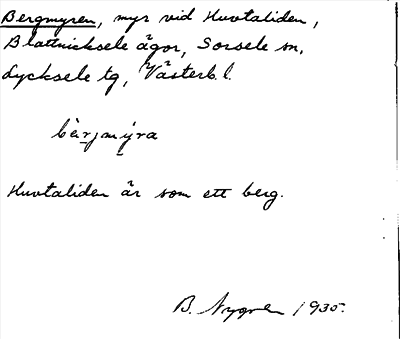 Bergmyren, myr vid Huvtaliden,
Blattnicksele ägor, Sorsele sn,
Lycksele tg, Västerb. l.
bèrjmýra
Huvtaliden är som ett berg.
B. Nygren 1935.